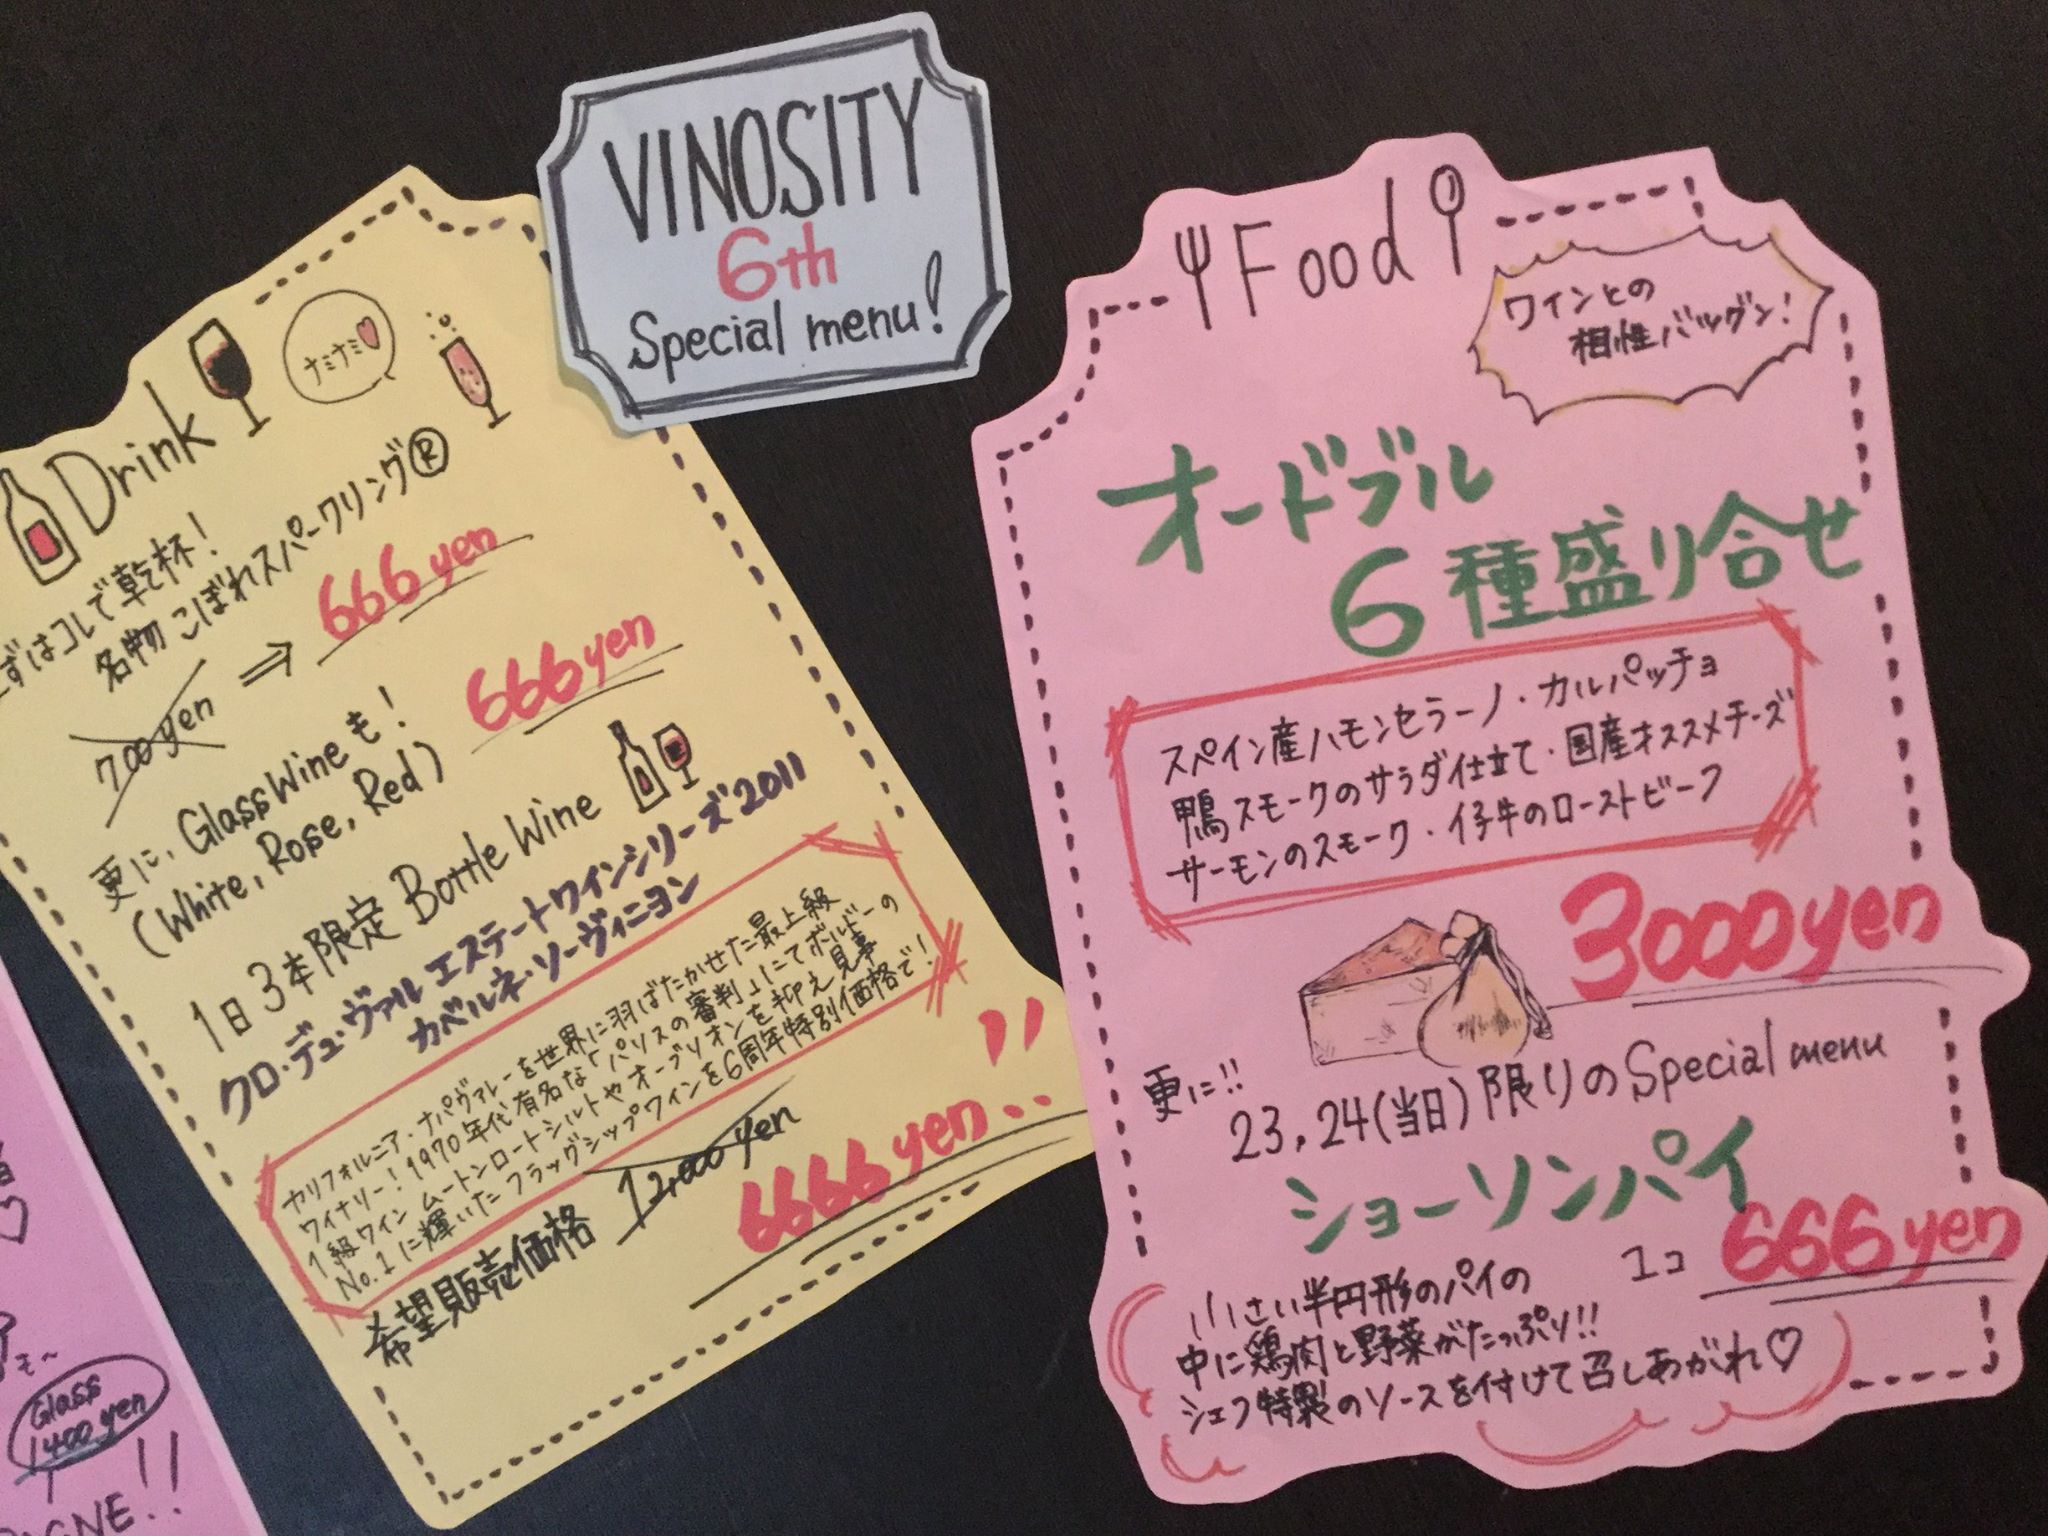 VINOSITY
6th
Special menu!
Drink
ナミナミ
ずはコレで乾杯!
名物 こぼれスパークリング®
700yen ⇒ 666yen
更に、GlassWineも!
(White, Rose, Red)
666yen
1日3本限定 Bottle Wine
クロ・デュ・ヴァル エステートワインシリーズ2011
カベルネ・ソーヴィニヨン
カリフォルニア・ナパヴァレーを世界に羽ばたかせた最上級
ワイナリー!1970年代有名な「パリスの審判」にてボルドーの
1級ワイン ムートンロートシルトやオーブリオンを抑え見事
No.1に輝いたフラッグシップワインを6周年特別価格で!
希望販売価格 12,000yen
6666yen..
Food
ワインとの
相性バツグン!
オードブル
6種盛り合せ
スペイン産ハモンセラーノ・カルパッチョ
鴨スモークのサラダ仕立て・国産オススメチーズ
サーモンのスモーク・仔牛のローストビーフ
3000yen
更に!!
23,24(当日)限りのSpecial menu
ショーソンパイ
1コ 666yen
小さい半円形のパイの
中に鶏肉と野菜がたっぷり!!
シェフ特製のソースを付けて召しあがれ♡
も〜
Glass
1400yen
GNE!!